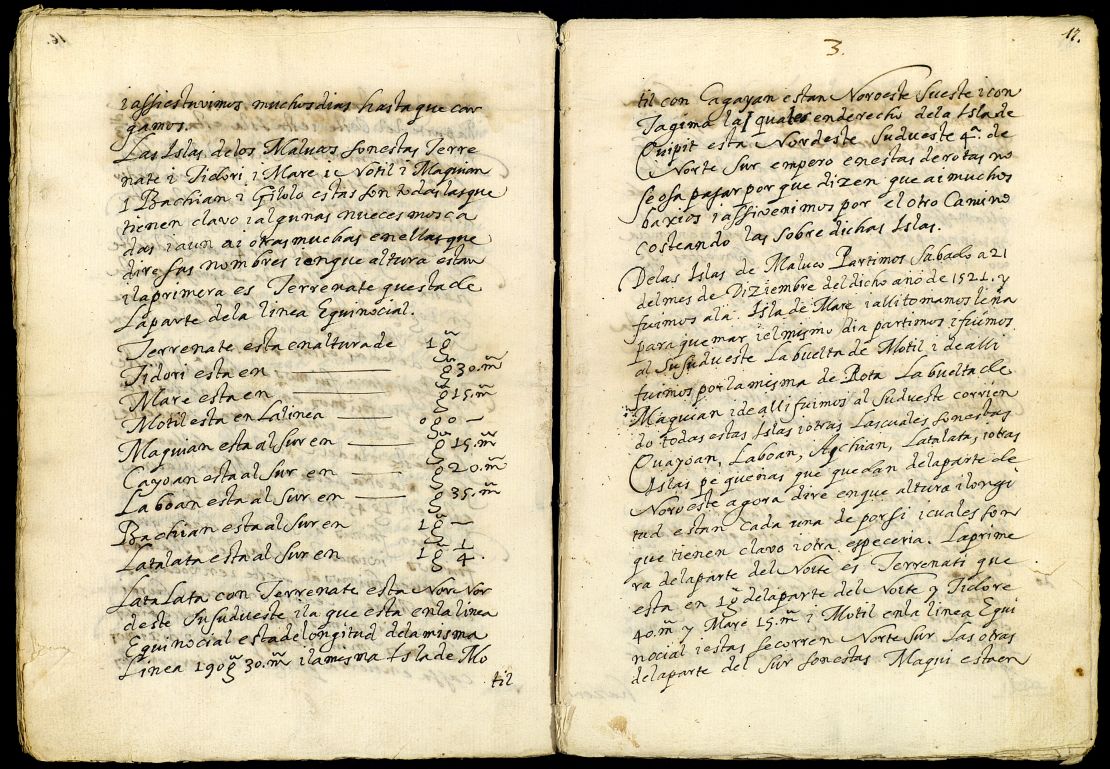 i assi estavimos muchos dias hasta que car
gamos.
Las Islas delos Malucos son estas Terre
nate i Tidori i Mare i Motil i Maquian
i Bachian i Gilolo estas son todas las que
tienen clavo i algunas nueces mosca
das i aun ai otras muchas en ellas que
dire sus nombres i enque altura estan
i la primera es Terrenate questa de
la parte de la linea Equinocial.
Terrenate esta en altura de 1 g̃
Tidori esta en g̃ 30. m̃
Mare esta en g̃ 15. m̃
Motil esta en La linea 0 g 0
Maquian esta al Sur en g̃ 15. m̃
Cayoan esta al Sur en g̃ 20. m̃
Laboan esta al Sur em g̃ 35. m̃
Bachian esta al Sur en 1 g̃
Latalata esta al Sur en 1 g̃ 1/4.
Lata Lata con Terrenate esta Nor Nor
deste Susudueste i la que esta en la linea
Equinocial esta de longitud de la misma
Linea 190 g̃ 30. m̃ i la misma Isla de Mo
til
3.
17.
til con Cagayan estan Noroeste Sueste i con
Tagima la quales enderecho dela Isla de
Quipit esta Nordeste Sudueste 4ª de
Norte Sur empero en estas derotas no
se osa pasar por que dizen que ai muchos
baxios i assi venimos por el otro Camino
costeando las sobre dichas Islas.
Delas Islas de Maluco Partimos Sabado a 21
del mes de Diziembre del dicho año de 1521. y
fuimos a la Isla de Mare i alli tomamos leña
para quemar i el mismo dia partimos i fuimos
al Susudueste La buelta de Motil i de alli
fuimos por la misma de Rota La buelta de
Maquian i de alli fuimos al Sudueste corrien
do todas estas Islas i otras Las cuales son estas
Quayoan, Laboan, Agchian, Latalata, i otras
Islas pequeñas que quedan dela parte de
Noroeste agora dire enque altura i longi
tud estan Cada una de por si i cuales son
que tienen clavo i otra especeria. La prime
ra dela parte del Norte es Terrenati que
esta en 1 g̃ dela parte del Norte y Tidore
40. m̃ y Mare 15. m̃ i Motil en la linea Equi
nocial i estas se corren Norte Sur Las otras
dela parte del Sur son estas Maqui esta en
16.